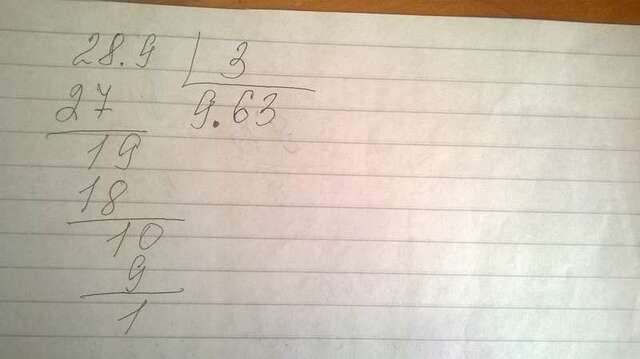 28.9 3
27 9.63
19
18
10
9
1